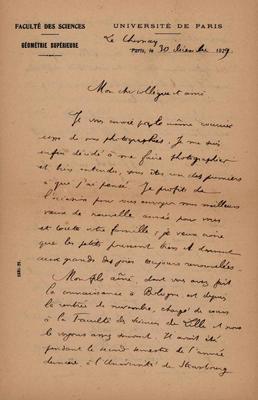 FACULTÉ DES SCIENCES
UNIVERSITÉ DE PARIS
GÉOMÉTRIE SUPÉRIEURE
Le Chesnay
Paris, le 30 décembre 1929
Mon cher collègue et ami
Je vous envoie par le même courrier
une de mes photographies. Je me suis
enfin décidé à me faire photographier
et bien entendu, vous êtes un des premiers
à qui j'ai pensé. Je profite de
l'occasion pour vous envoyer mes meilleurs
vœux de nouvelle année pour vous
et toute votre famille ; je veux croire
que les petits poussent bien et donnent
aux grands des joies toujours renouvelées.
Mon fils aîné, dont vous avez fait
la connaissance à Bologne, est depuis
la rentrée de novembre, chargé de cours
à la Faculté des Sciences de Lille et nous
le voyons assez souvent. Il avait été
pendant le second semestre de l'année
dernière à l'Université de Strasbourg